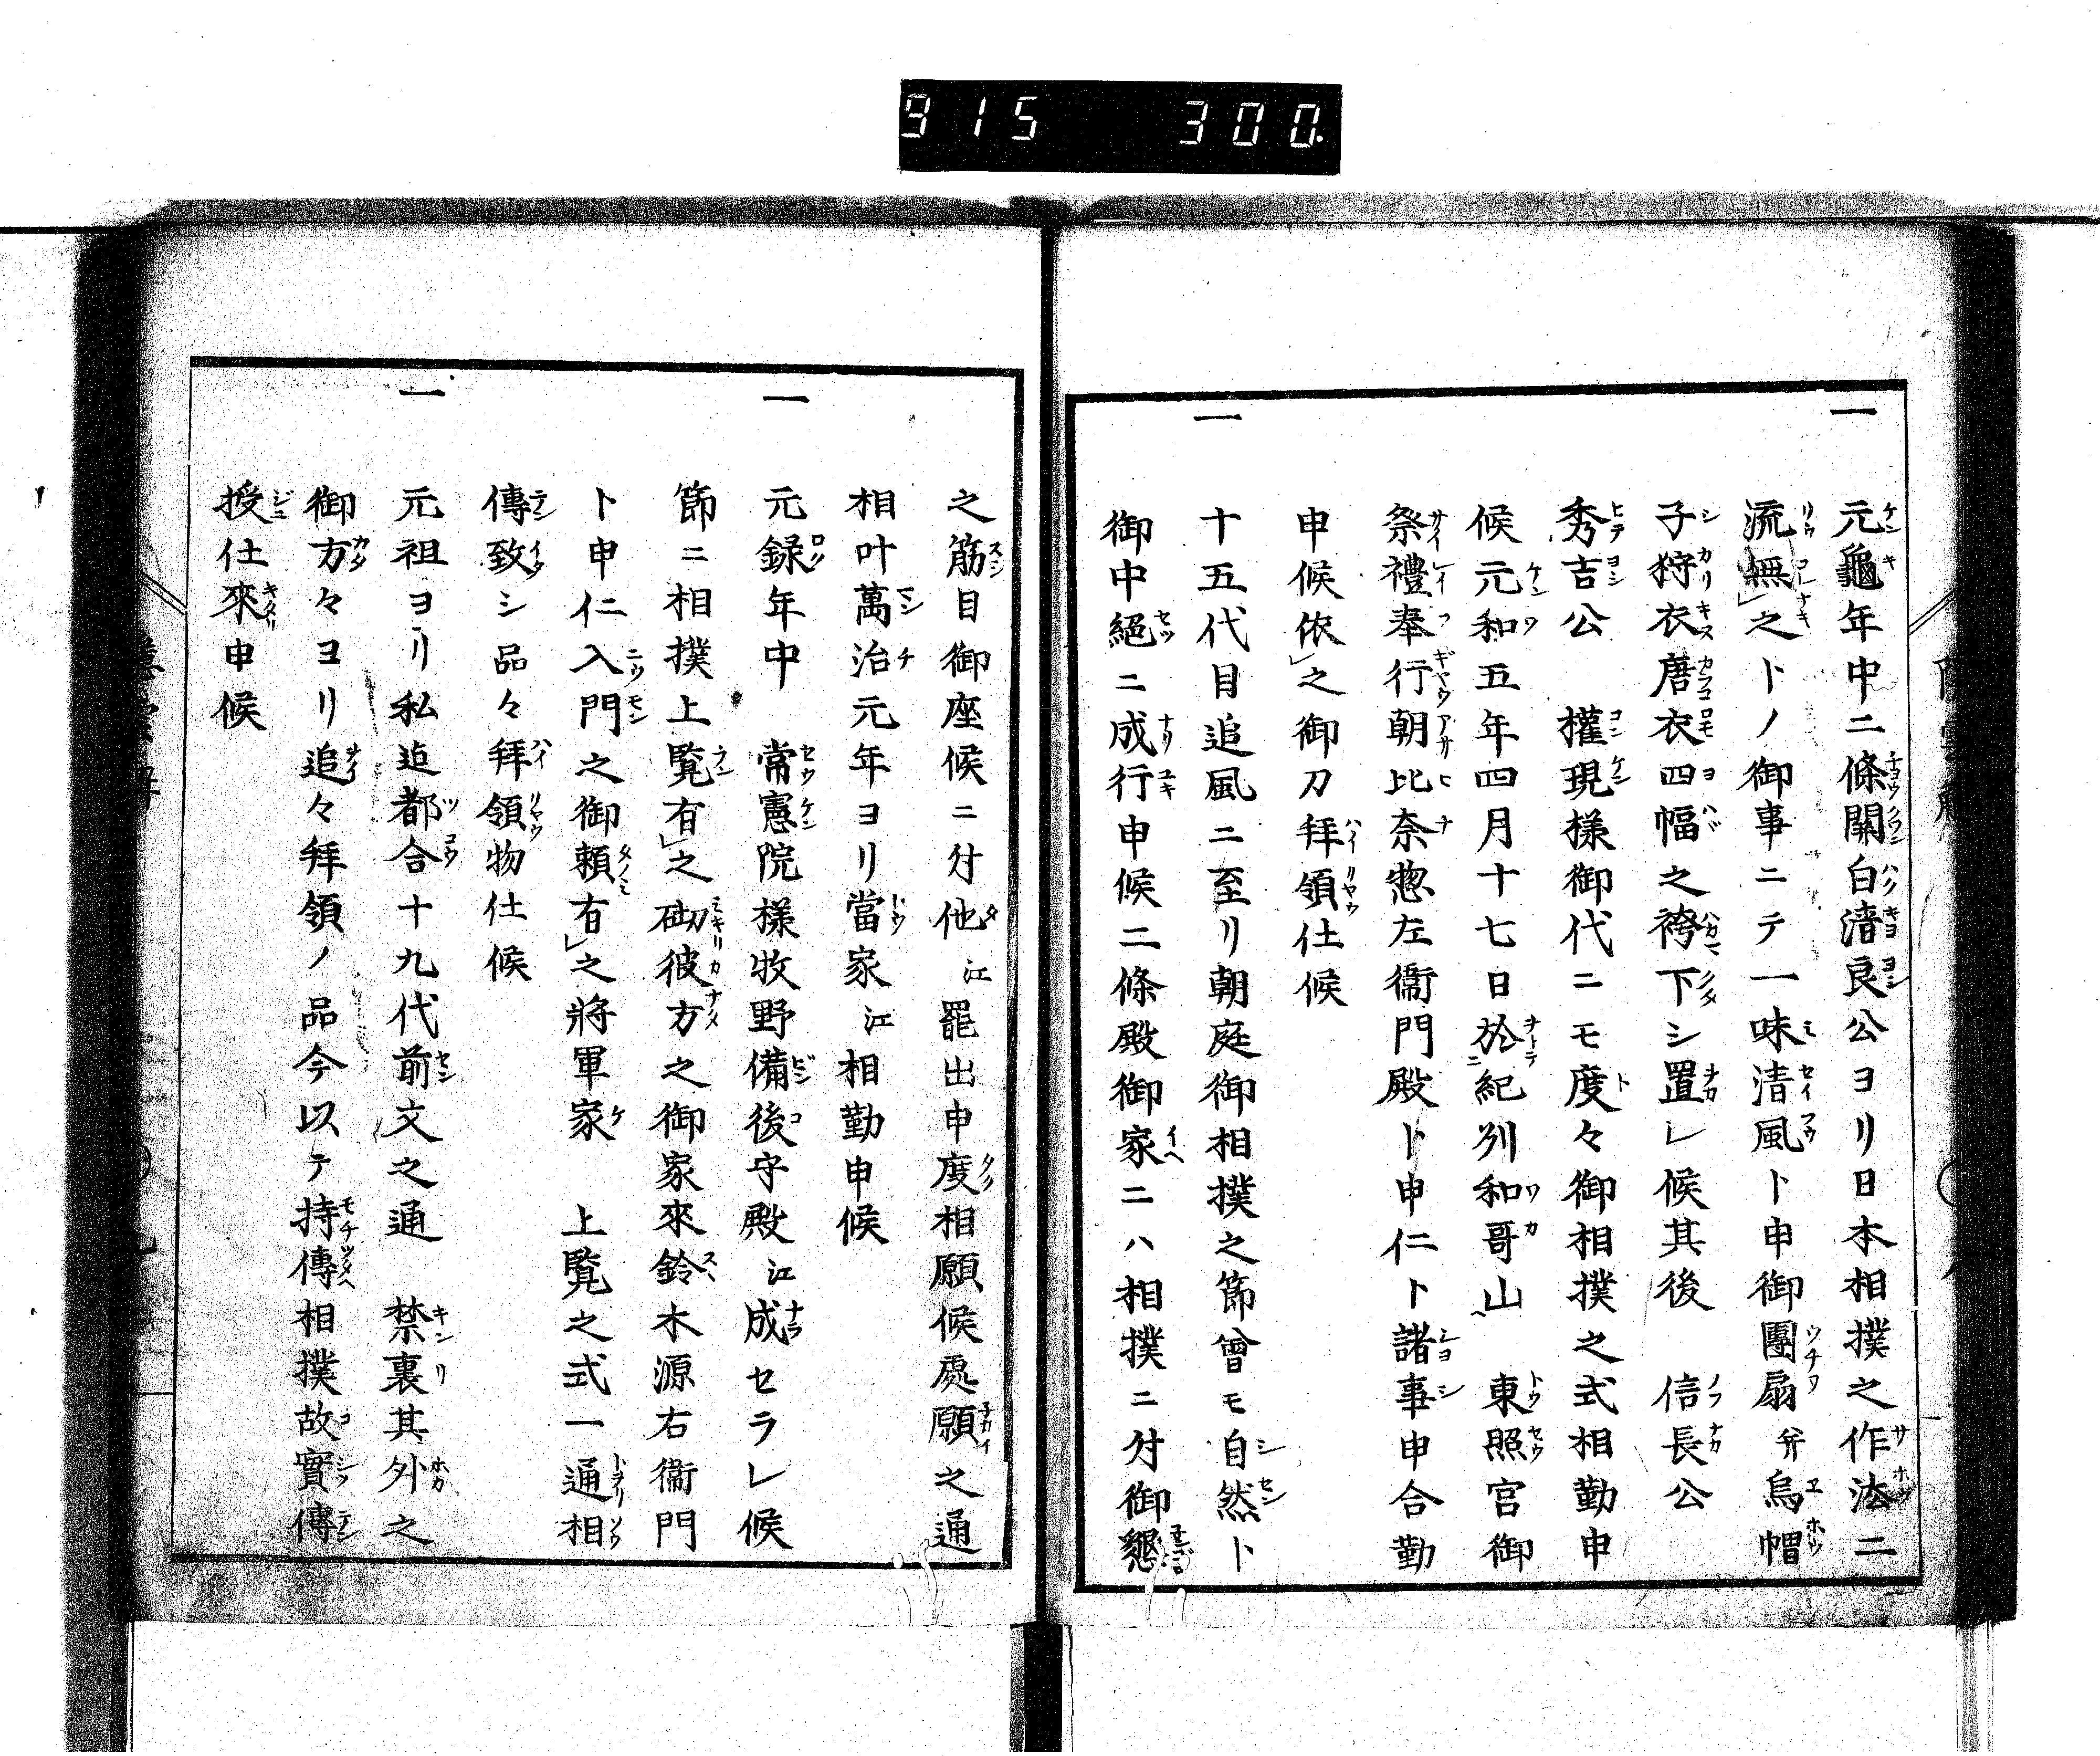 915 300.
一 元龜年中二條關白淸良公ヨリ日本相撲之作法二
流無之トノ御事ニテ一味淸風ト申御團扇幷烏帽
子狩衣唐衣四幅之袴下シ置レ候其後 信長公
秀吉公 權現樣御代ニモ度々御相撲之式相勤申
候元和五年四月十七日於紀州和哥山 東照宮御
祭禮奉行朝比奈惣左衞門殿ト申仁ト諸事申合勤
申候依之御刀拜領仕候
一 十五代目追風ニ至リ朝庭御相撲之節會モ自然ト
御中絕ニ成行申候二條殿御家ニハ相撲ニ付御懇
之筋目御座候ニ付他江罷出申度相願候處願之通
相叶萬治元年ヨリ當家江相勤申候
一 元録年中 常憲院樣牧野備後守殿江成セラレ候
節ニ相撲上覽有之砌彼方之御家來鈴木源右衞門
ト申仁入門之御賴有之將軍家 上覽之式一通相
傳致シ品々拜領物仕候
一 元祖ヨリ私迄都合十九代前文之通 禁裏其外之
御方々ヨリ追々拜領ノ品今以テ持傳相撲故實傳
授仕來申候